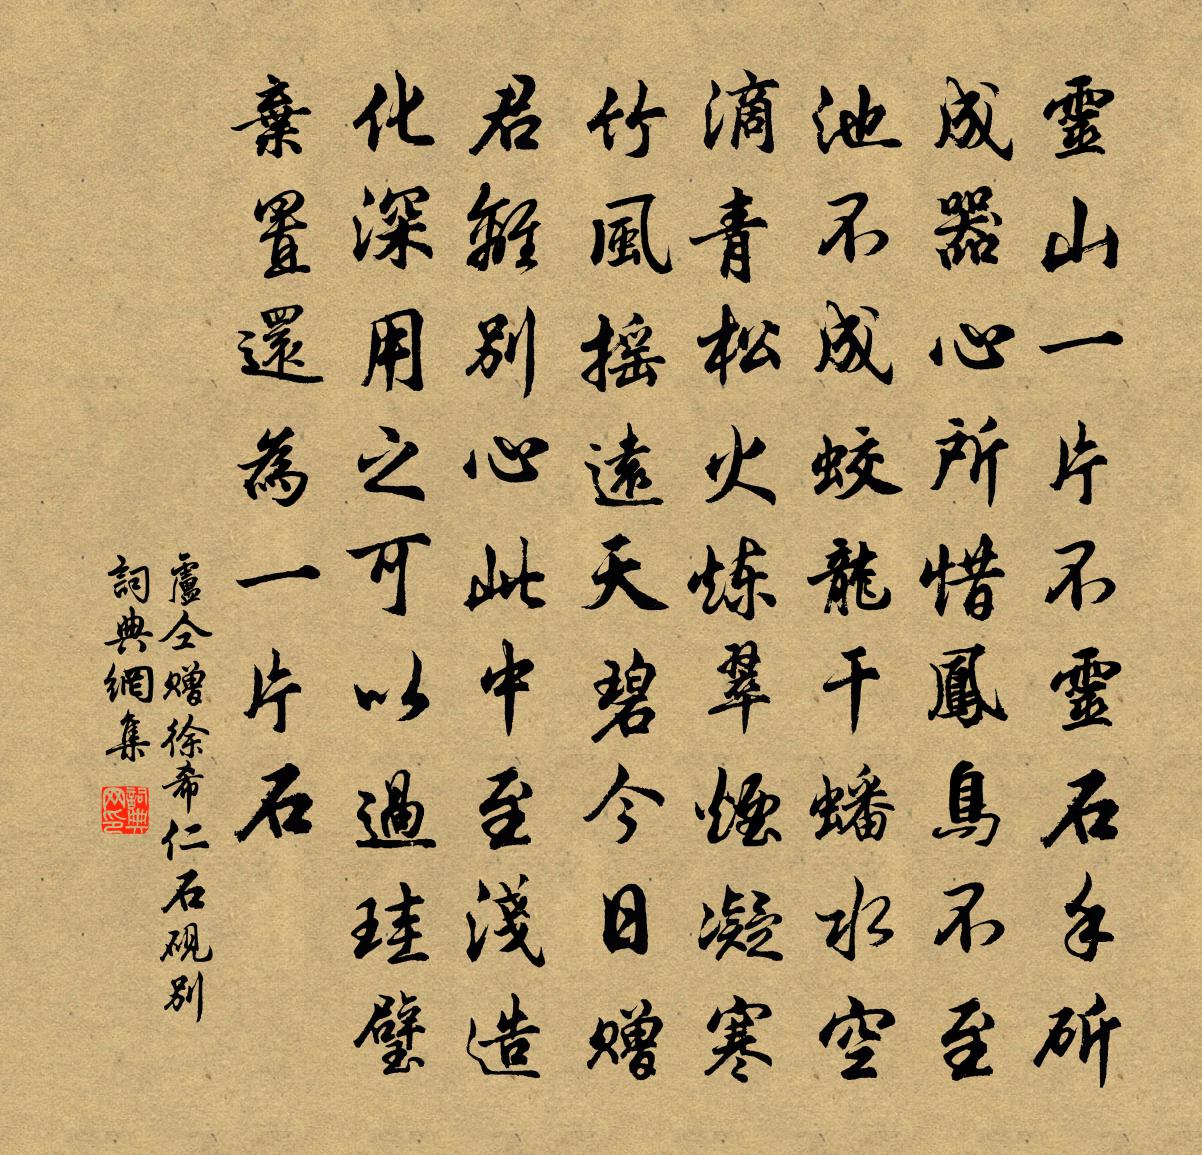 靈山一片不靈石手斫
成器心所惜鳳鳥不至
池不成蛟龍干蟠水空
滴青松火炼翠煙凝寒
竹風摇遠天碧今日赠
君離別心此中至淺造
化深用之可以過珪璧
棄置還為一片石
盧仝赠徐希仁石砚別
詞典網集
詞典网印